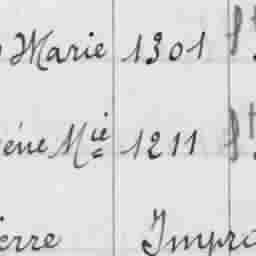 Marie 1301 ft
ène Mie 1211 ft
erre Impro